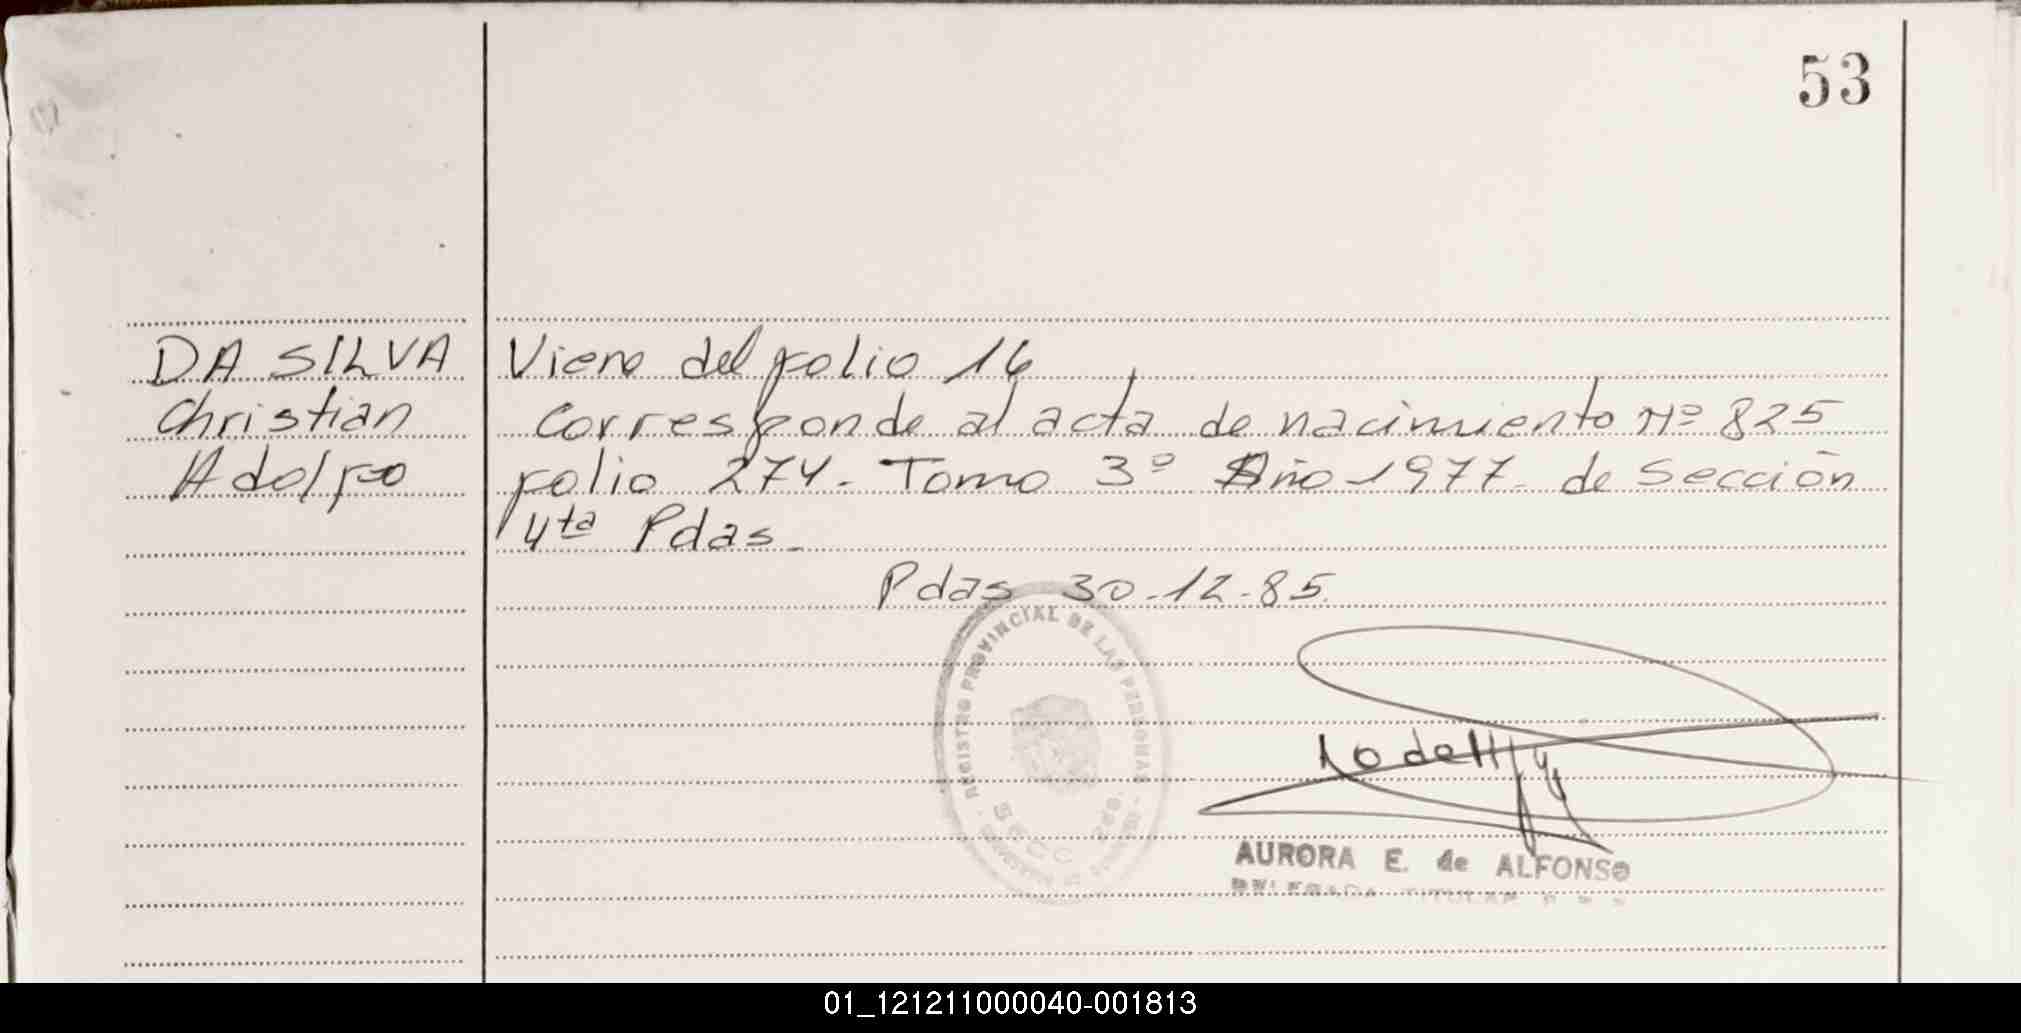 53
DA SILVA
Christian
Adolfo
Viene del folio 16
Corresponde al acta de nacimiento Nº 825
folio 274. Tomo 3º Año 1977. de Sección
4ta Pdas.
Pdas 30-12-85.
REGISTRO PROVINCIAL DE LAS PERSONAS
SECC
AURORA E. de ALFONSO
DELEGADA TITULAR
01_121211000040-001813